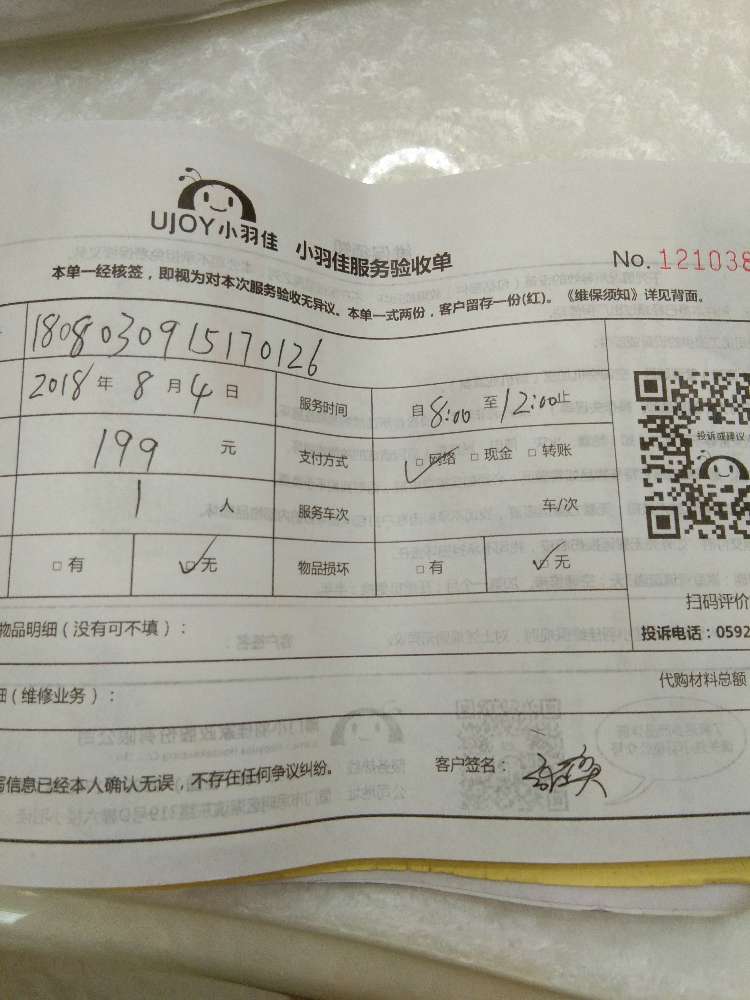 UJOY小羽佳 小羽佳服务验收单
No. 121038
本单一经核签，即视为对本次服务验收无异议。本单一式两份，客户留存一份(红)。《维保须知》详见背面。
1808030915170126
2018年8月4日 服务时间 自8:00至12:00止
199元 支付方式 ✓□网络 □现金 □转账
投诉或建议
1人 服务车次 车/次
□有 ✓□无 物品损坏 □有 ✓□无
扫码评价
物品明细（没有可不填）：
投诉电话：0592
（维修业务）：
代购材料总额
信息已经本人确认无误，不存在任何争议纠纷。
客户签名：